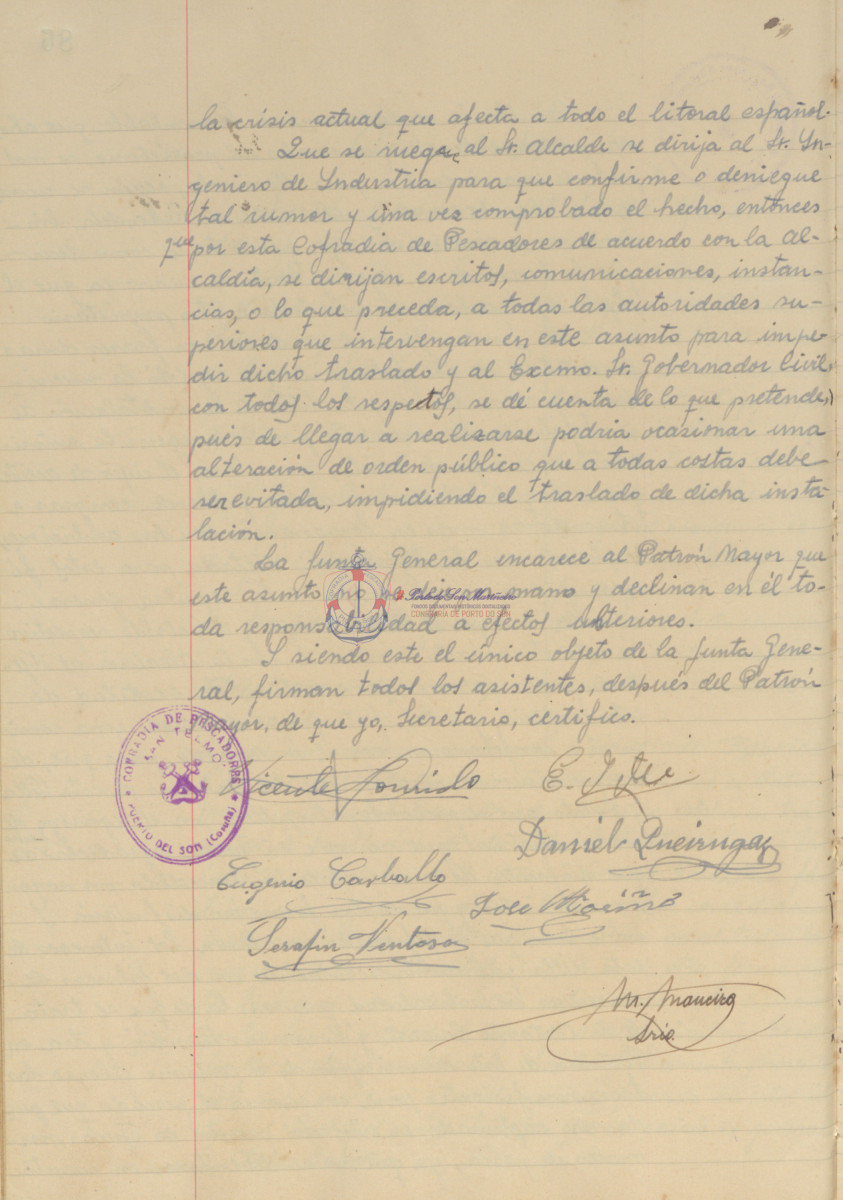 la crisis actual que afecta a todo el litoral español.
Que se ruega al Sr. Alcalde se dirija al Sr. Yn-
geniero de Yndustria para que confirme o deniegue
tal rumor y una vez comprobado el hecho, entonces
que por esta Cofradia de Pescadores de acuerdo con la Al-
caldía, se dirijan escritos, comunicaciones, instan-
cias, o lo que preceda, a todas las autoridades su-
periores que intervengan en este asunto para impe-
dir dicho traslado y al Excmo. Sr. Gobernador Civil,
con todos los respectos, se dé cuenta de lo que pretende,
pués de llegar a realizarse podria ocasionar una
alteración de orden público que a todas costas debe
ser evitada, impidiendo el traslado de dicha insta-
lación.
La Junta General encarece al Patrón Mayor que
este asunto no se deje de mano y declinan en él to-
da responsabilidad a efectos ulteriores.
Y siendo este el único objeto de la Junta Gene-
ral, firman todos los asistentes, después del Patrón
Mayor, de que yo, Secretario, certifico.
COFRADIA DE PESCADORES
SAN TELMO
PUERTO DEL SON (Coruña)
Vicente
E.
Daniel Queiruga
Eugenio Carballo
Jose Mariño
Serafin Ventosa
M. Maneiro
Srio.
CONFRARÍA DE PORTO DO SON